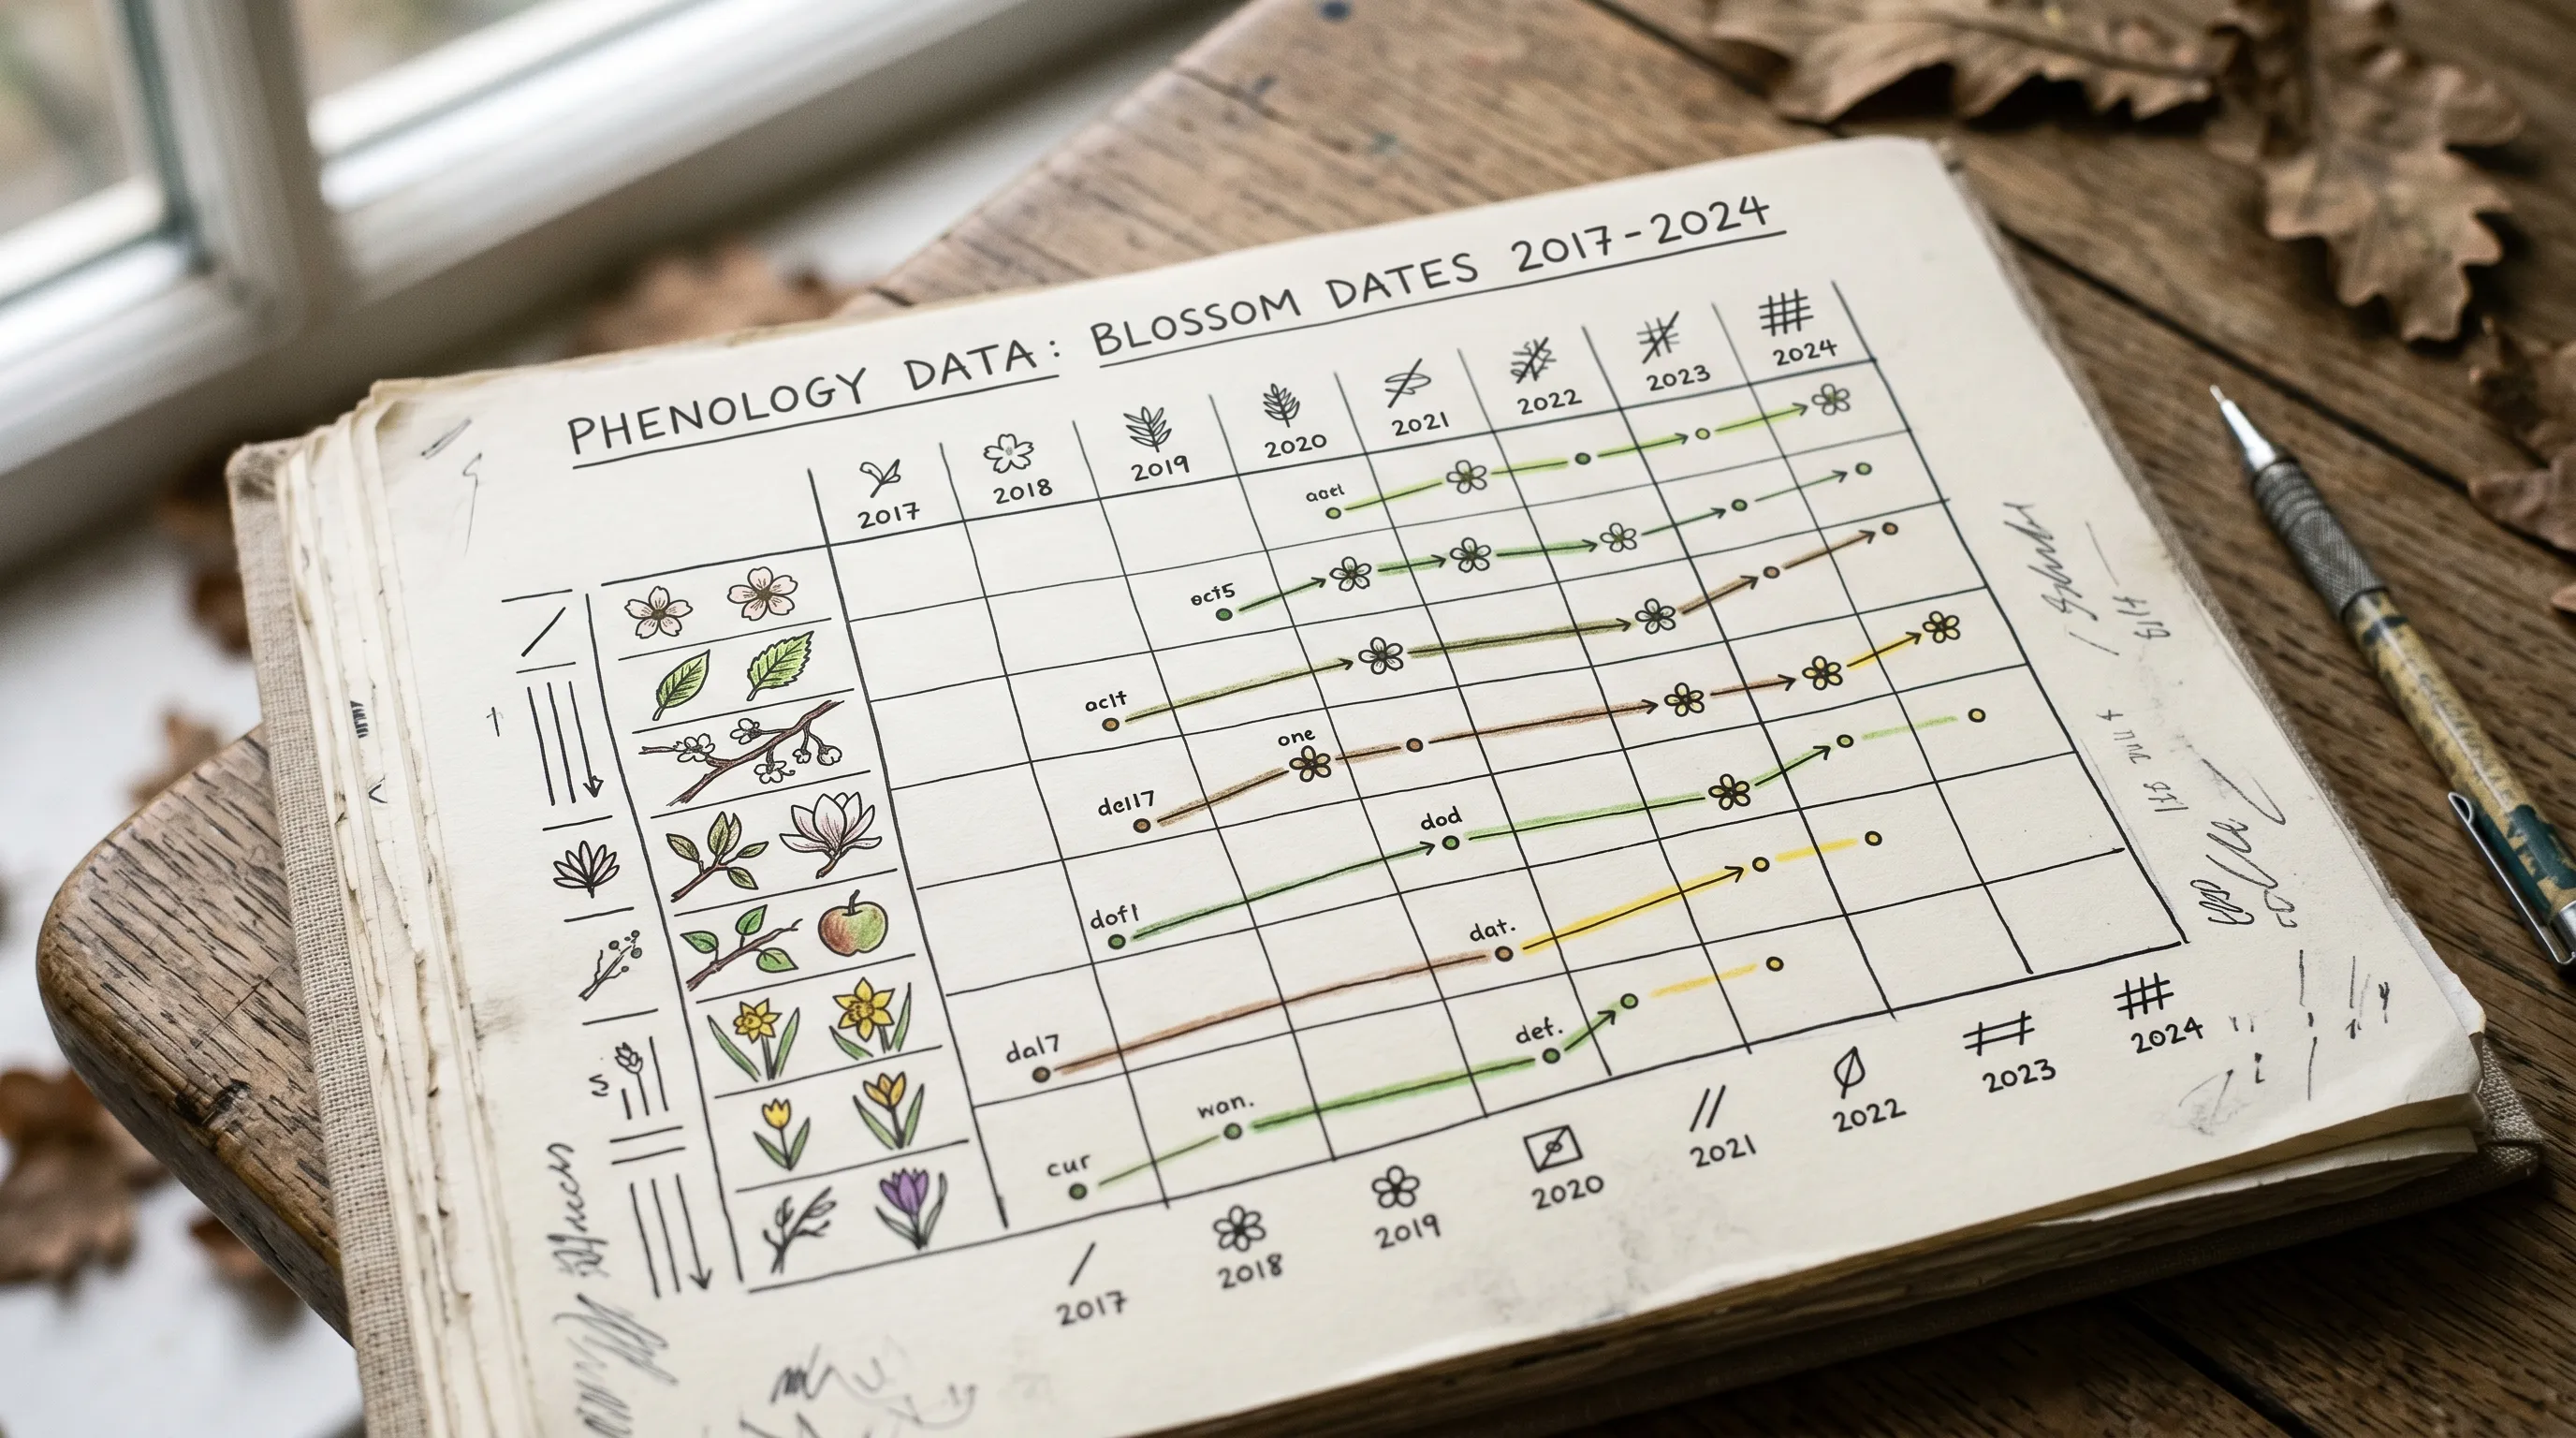 PHENOLOGY DATA: BLOSSOM DATES 2017-2024
2017 2018 2019 2020 2021 2022 2023 2024
oct5
aclt
one
de117
dod
dof1
dat.
da17
det.
wan.
cur
2017 2018 2019 2020 2021 2022 2023 2024